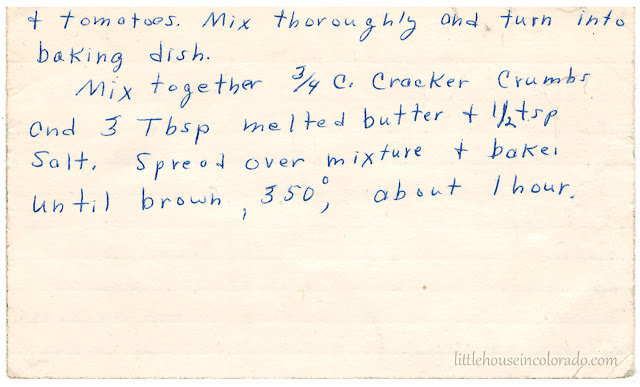 + tomatoes. Mix thoroughly and turn into
baking dish.
Mix together 3/4 C. Cracker Crumbs
and 3 Tbsp melted butter + 1/2 tsp
Salt. Spread over mixture + bake
until brown, 350°, about 1 hour.
littlehouseincolorado.com